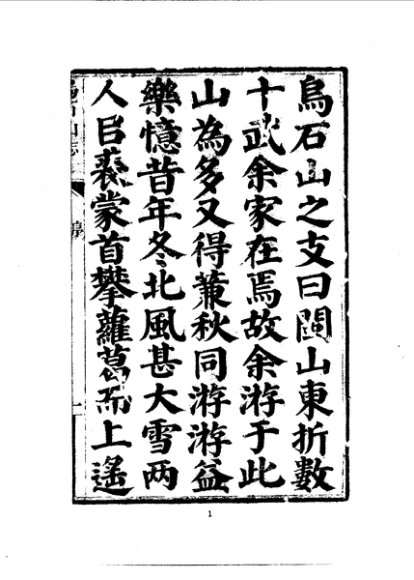 烏石山之支曰閩山東折數
十武余家在焉故余游于此
山為多又得蒹秋同游游益
樂憶昔年冬北風甚大雪两
人㠯裘蒙首攀蘿葛而上遙
烏石山志
序
一
1